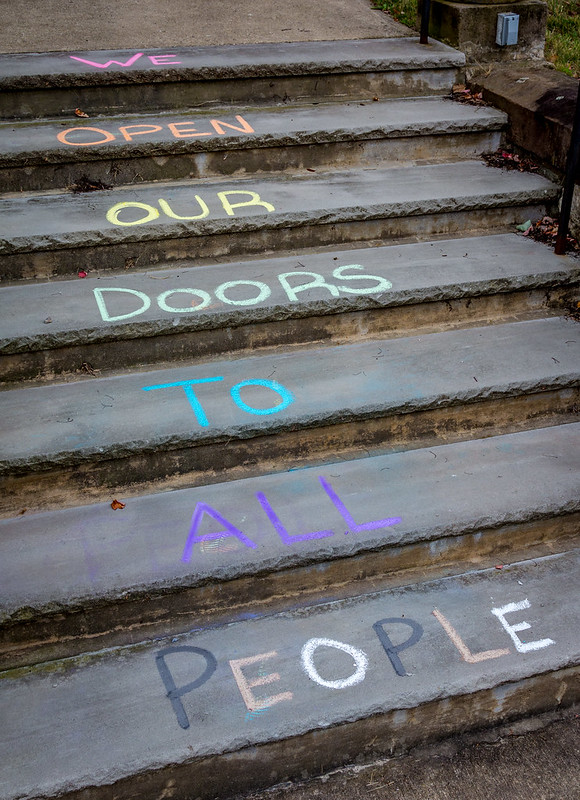 WE
OPEN
OUR
DOORS
TO
ALL
PEOPLE